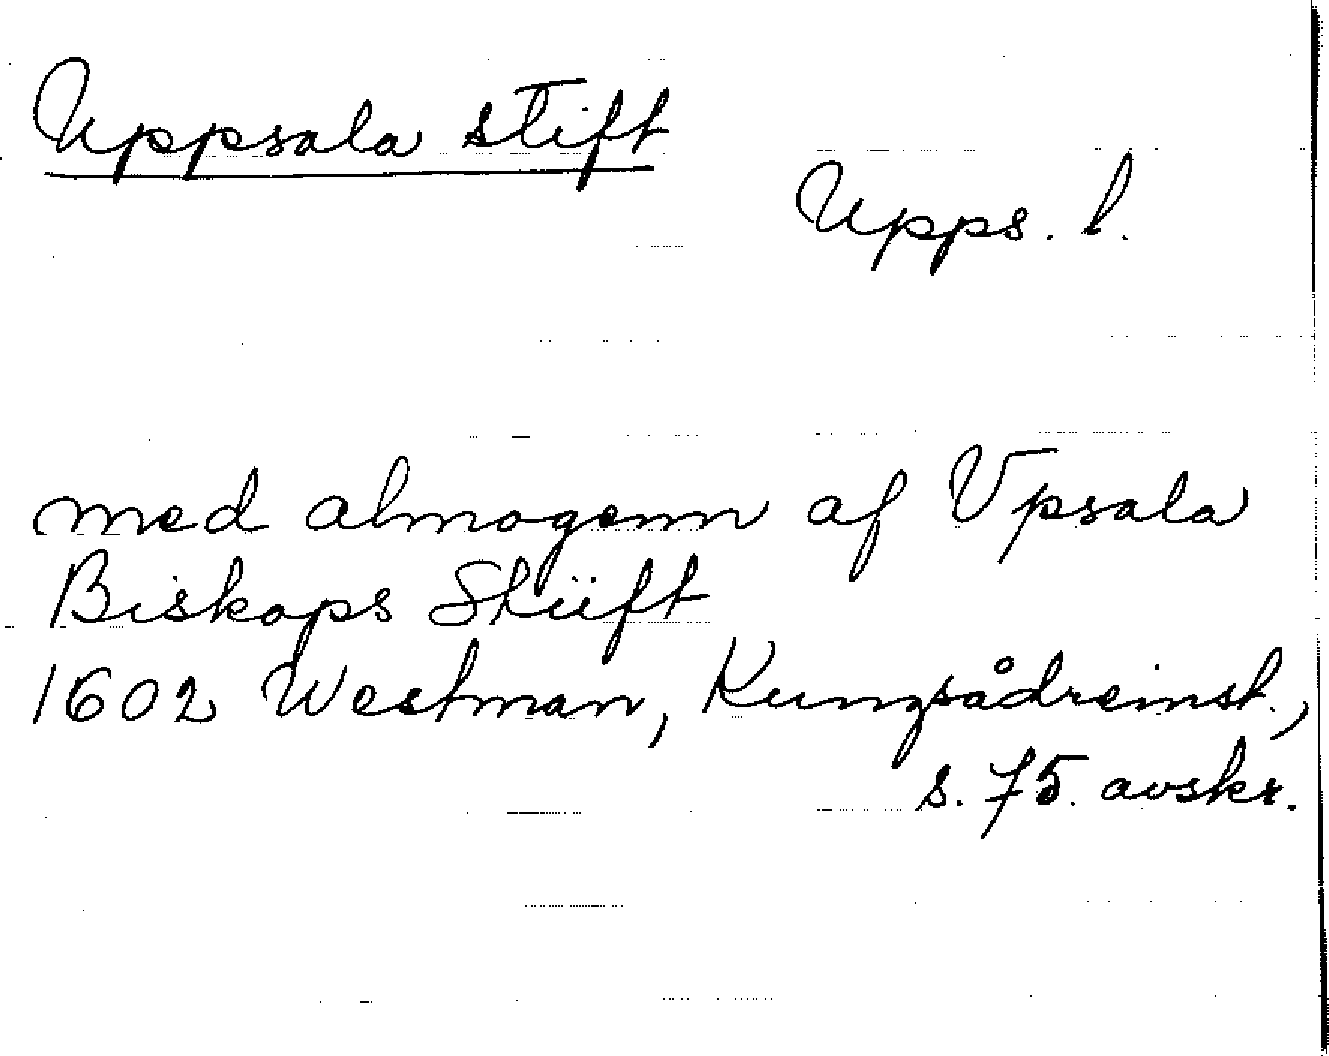 Uppsala stift
Upps. l.
med almogenn af Vpsala
Biskops Stüft
1602 Westman, Kungsådreinst.,
s. 75. avskr.